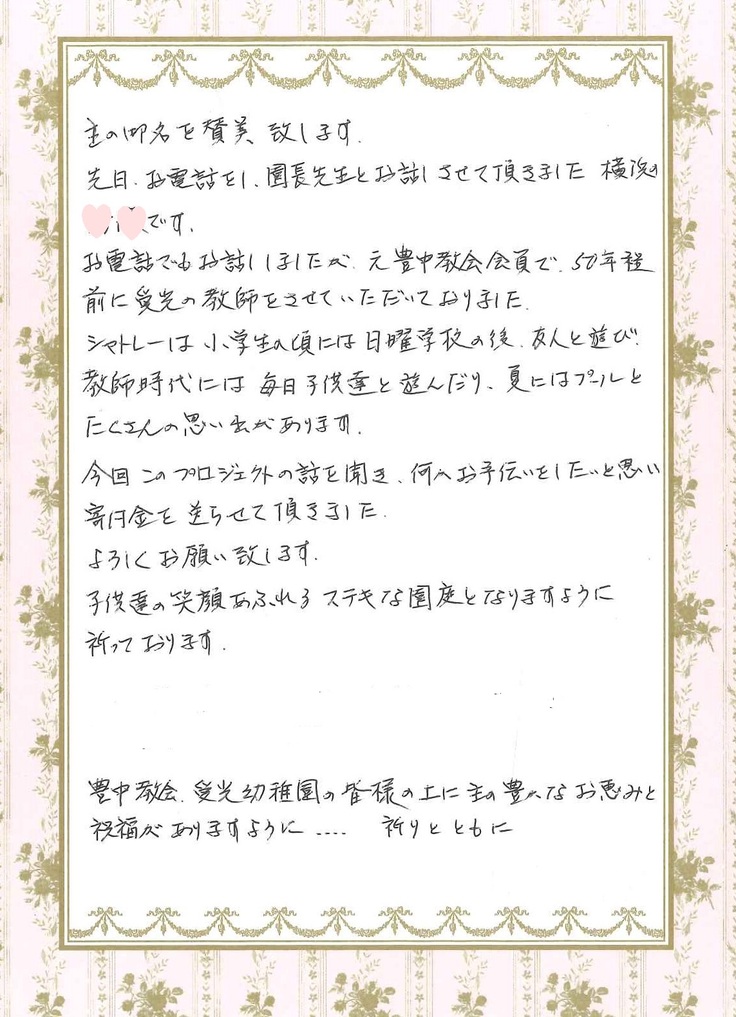 主の御名を賛美致します.
先日、お電話をし、園長先生とお話しさせて頂きました 横浜の
です.
お電話でもお話ししましたが、元豊中教会会員で、50年程
前に愛光の教師をさせていただいておりました.
シャトレーは 小学生の頃には日曜学校の後、友人と遊び、
教師時代には 毎日子供達と遊んだり、夏にはプールと
たくさんの思い出があります.
今回 このプロジェクトの話を聞き、何かお手伝いをしたいと思い
寄付金を 送らせて頂きました.
よろしくお願い致します.
子供達の笑顔あふれる ステキな園庭となりますように
祈っております.
豊中教会、愛光幼稚園の皆様の上に主の豊かなお恵みと
祝福がありますように .... 祈りとともに